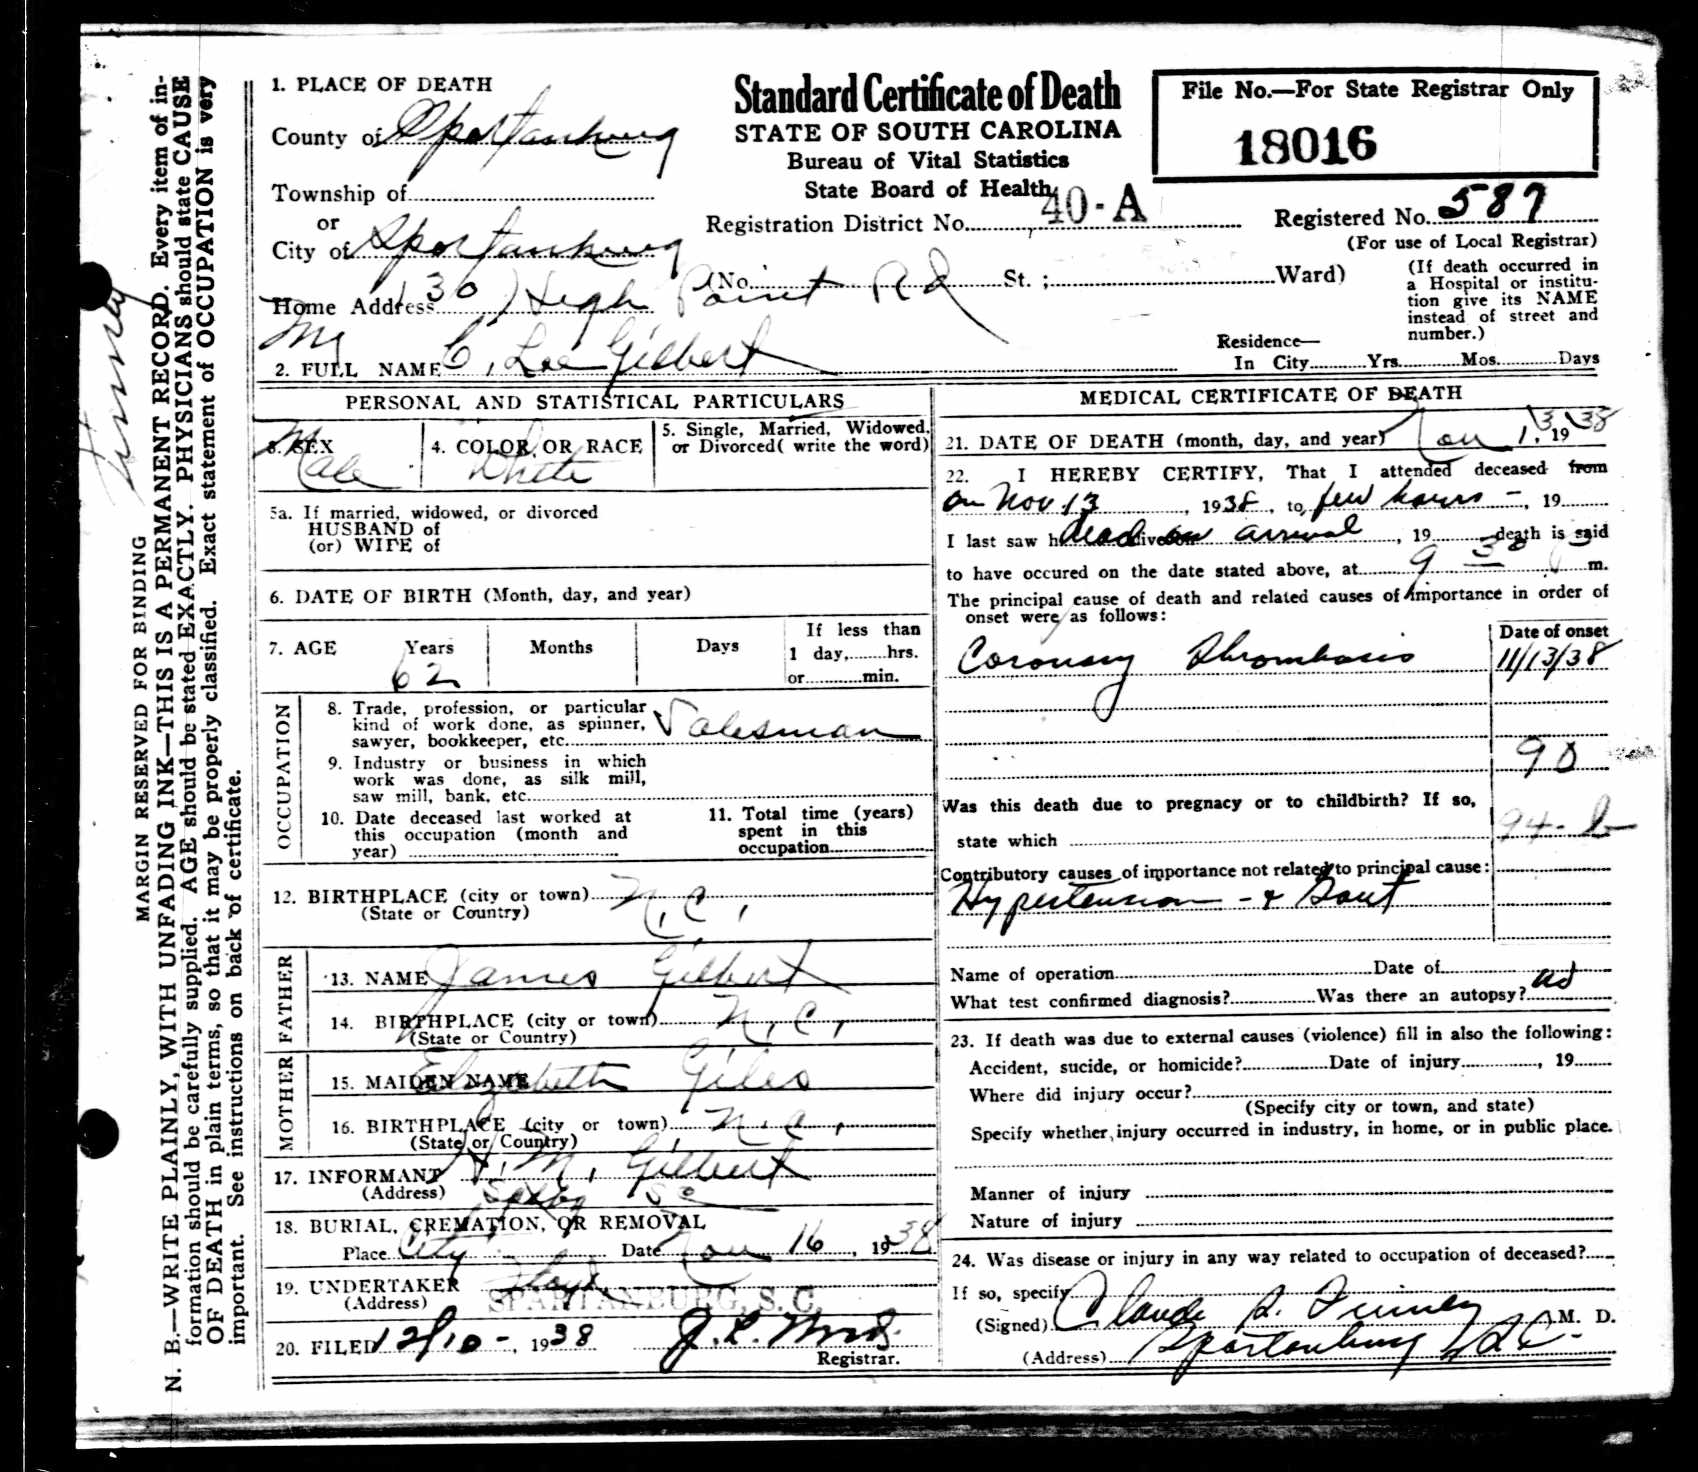 Standard Certificate of Death
STATE OF SOUTH CAROLINA
Bureau of Vital Statistics
State Board of Health
File No.—For State Registrar Only
18016
Registration District No. 40-A
Registered No. 587
(For use of Local Registrar)
1. PLACE OF DEATH
County of Spartanburg
Township of
or
City of Spartanburg
(No. St.; Ward)
(If death occurred in
a Hospital or institu-
tion give its NAME
instead of street and
number.)
Home Address 130 High Point Rd
Residence—
In City Yrs. Mos. Days
2. FULL NAME Mr C. Lee Gilbert
PERSONAL AND STATISTICAL PARTICULARS
3. SEX Male
4. COLOR OR RACE White
5. Single, Married, Widowed,
or Divorced( write the word)
5a. If married, widowed, or divorced
HUSBAND of
(or) WIFE of
6. DATE OF BIRTH (Month, day, and year)
7. AGE Years 62 Months Days
If less than
1 day, hrs.
or min.
OCCUPATION
8. Trade, profession, or particular
kind of work done, as spinner,
sawyer, bookkeeper, etc. Salesman
9. Industry or business in which
work was done, as silk mill,
saw mill, bank, etc.
10. Date deceased last worked at
this occupation (month and
year)
11. Total time (years)
spent in this
occupation
12. BIRTHPLACE (city or town) N.C.
(State or Country)
FATHER
13. NAME James Gilbert
14. BIRTHPLACE (city or town) N.C.
(State or Country)
MOTHER
15. MAIDEN NAME Elizabeth Giles
16. BIRTHPLACE (city or town) N.C.
(State or Country)
17. INFORMANT M. Gilbert
(Address)
18. BURIAL, CREMATION, OR REMOVAL
Place City Date Nov 16, 1938
19. UNDERTAKER Floyd
(Address) SPARTANBURG, S. C.
20. FILED 12/10-, 1938 J. L.
Registrar.
MEDICAL CERTIFICATE OF DEATH
21. DATE OF DEATH (month, day, and year) Nov 13, 1938
22. I HEREBY CERTIFY, That I attended deceased from
on Nov. 13, 1938, to few hours -, 19
I last saw h alive on dead on arrival, 19 death is said
to have occured on the date stated above, at 9 30 m.
The principal cause of death and related causes of importance in order of
onset were as follows:
Date of onset
Coronary Thrombosis 11/13/38
90
Was this death due to pregnacy or to childbirth? If so,
state which
94-b
Contributory causes of importance not related to principal cause:
Hypertension - & Gout
Name of operation Date of
What test confirmed diagnosis? Was there an autopsy? no
23. If death was due to external causes (violence) fill in also the following:
Accident, sucide, or homicide? Date of injury , 19
Where did injury occur?
(Specify city or town, and state)
Specify whether injury occurred in industry, in home, or in public place.
Manner of injury
Nature of injury
24. Was disease or injury in any way related to occupation of deceased?
If so, specify
(Signed) Claude A. Finney M. D.
(Address) Spartanburg SC.
MARGIN RESERVED FOR BINDING
N. B.—WRITE PLAINLY, WITH UNFADING INK—THIS IS A PERMANENT RECORD. Every item of in-
formation should be carefully supplied. AGE should be stated EXACTLY. PHYSICIANS should state CAUSE
OF DEATH in plain terms, so that it may be properly classified. Exact statement of OCCUPATION is very
important. See instructions on back of certificate.
Finney